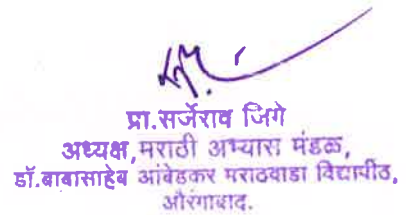 प्रा.सर्जेराव जिगे
अध्यक्ष,मराठी अभ्यास मंडळ,
डॉ.बाबासाहेब आंबेडकर मराठवाडा विद्यापीठ,
औरंगाबाद.